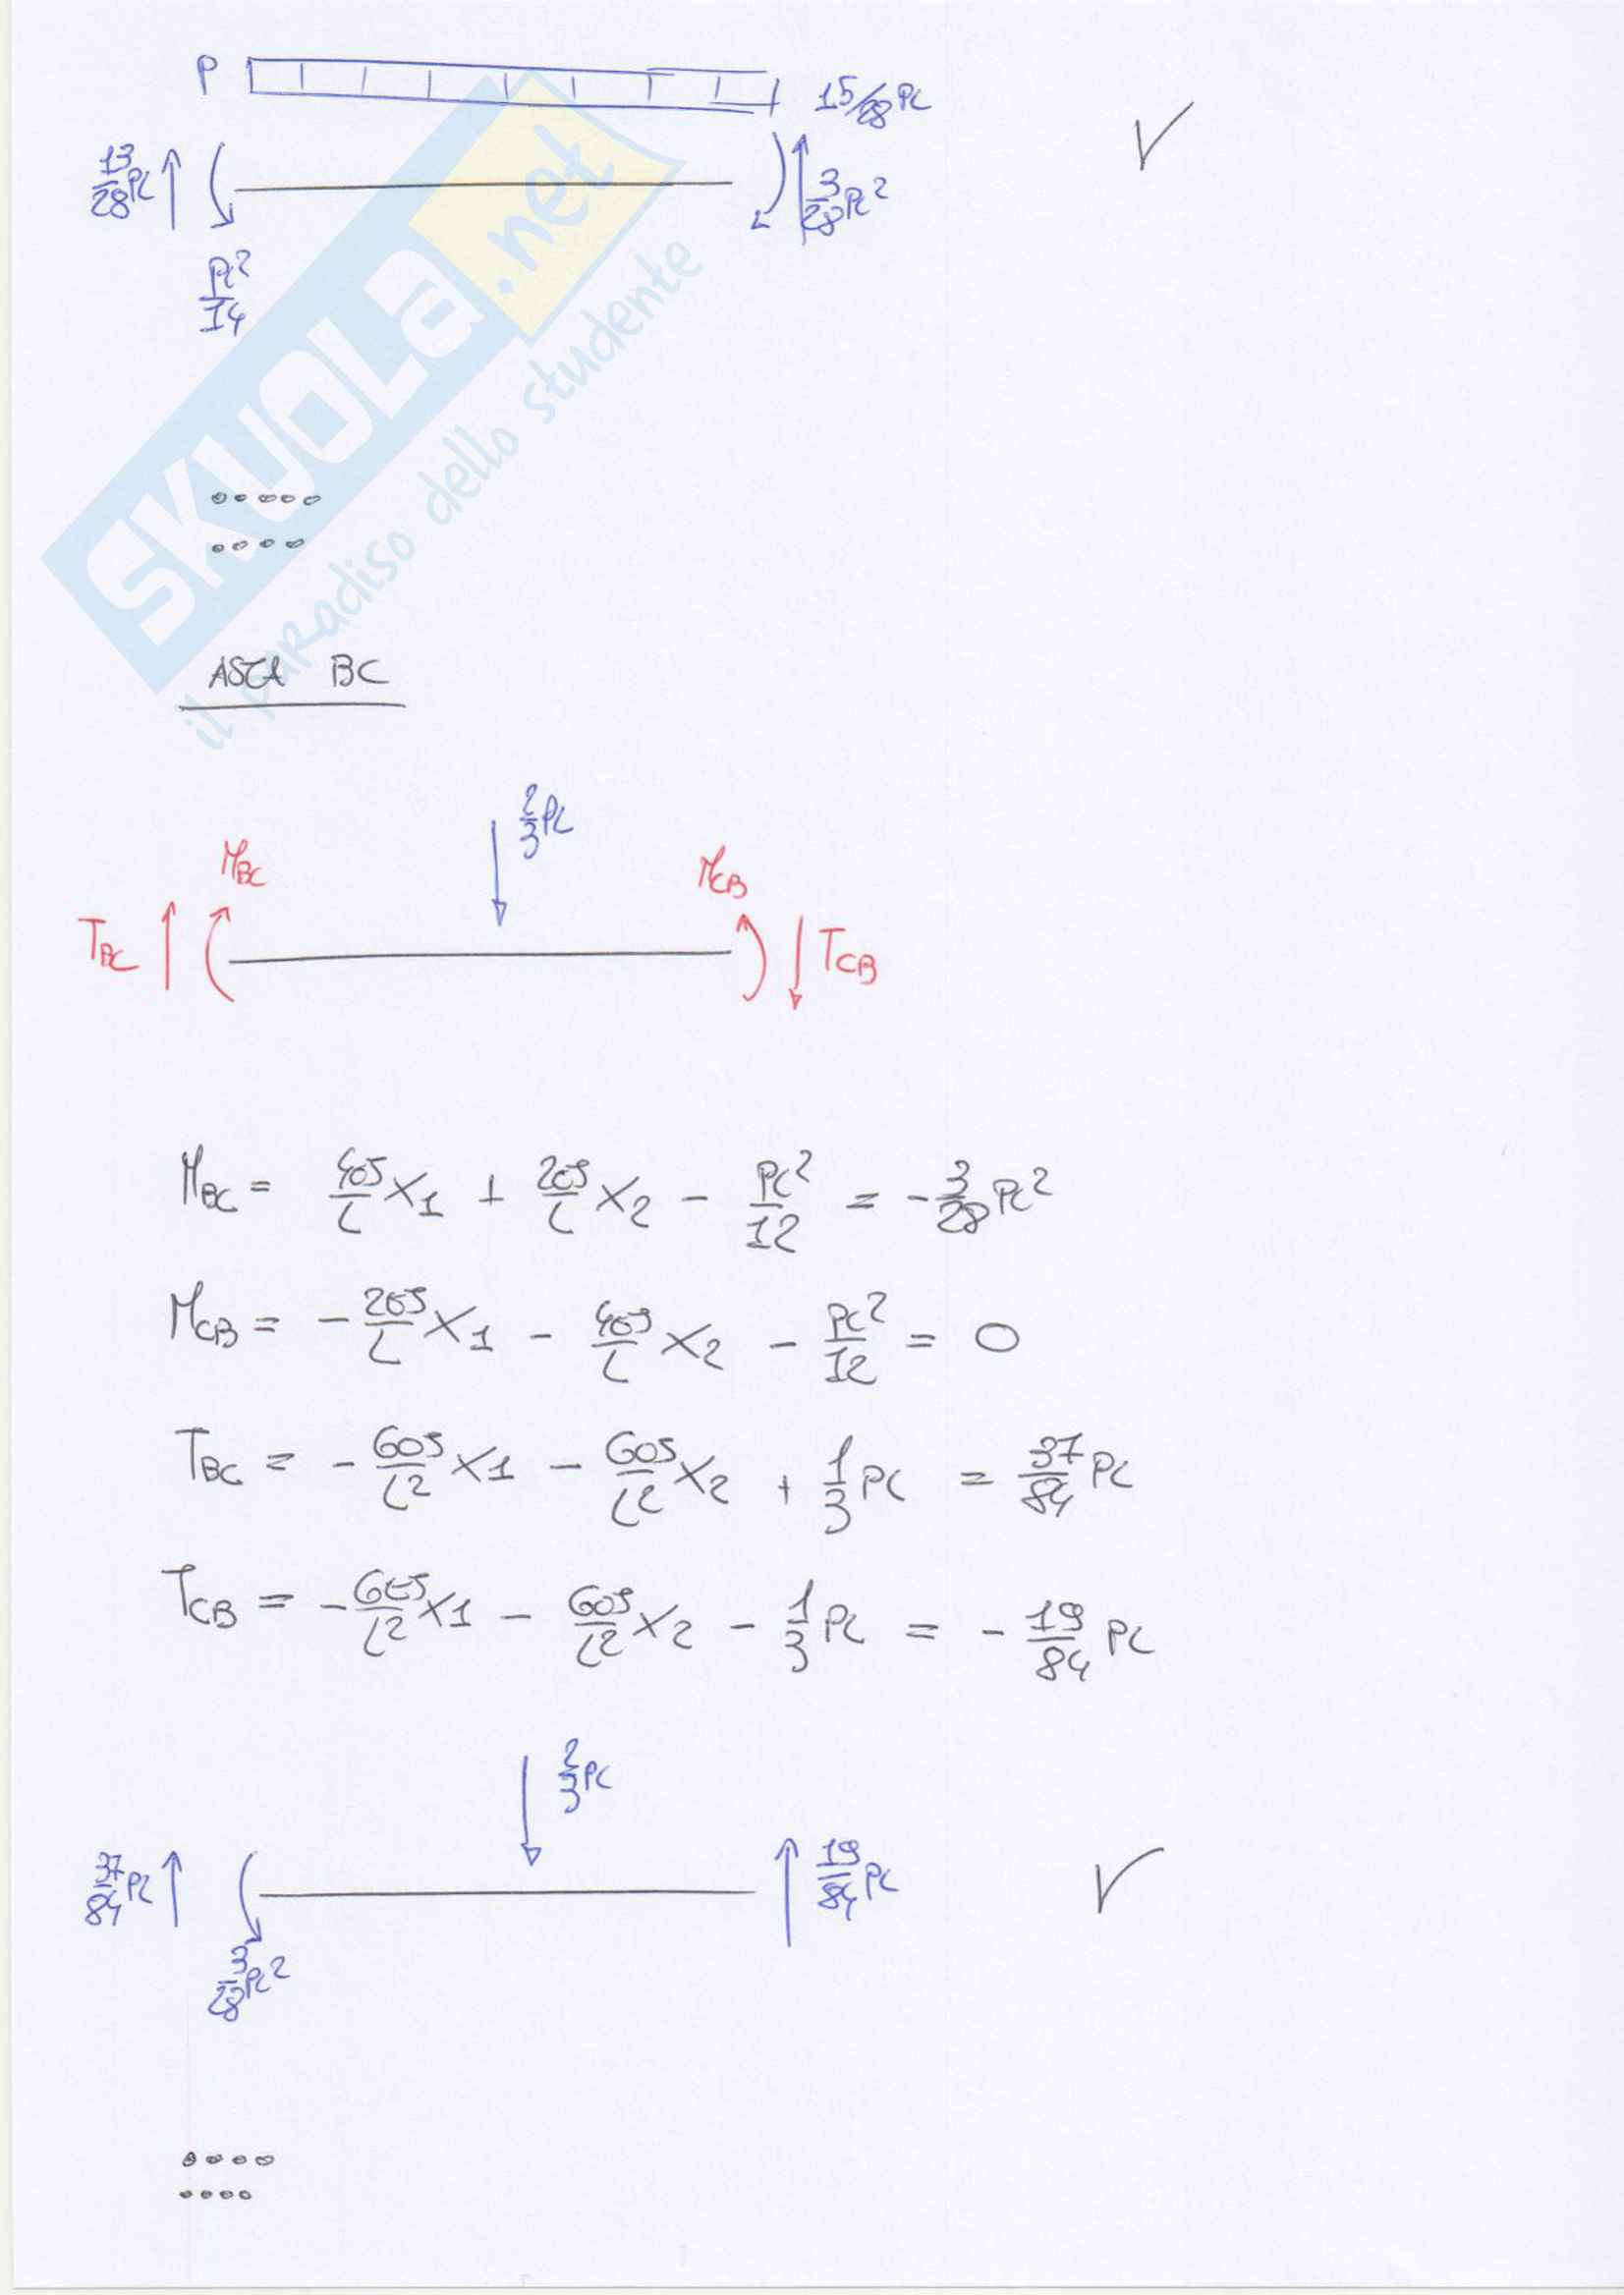 P
15/28 Pl
13/28 Pl
3/28 Pl²
Pl²/14
SKUOLA.net
il paradiso dello studente
ASTA BC
2/3 Pl
M_BC
M_CB
T_BC
T_CB
M_BC = 4EJ/l X_1 + 2EJ/l X_2 - Pl²/12 = -3/28 Pl²
M_CB = -2EJ/l X_1 - 4EJ/l X_2 - Pl²/12 = 0
T_BC = -6EJ/l² X_1 - 6EJ/l² X_2 + 1/3 Pl = 37/84 Pl
T_CB = -6EJ/l² X_1 - 6EJ/l² X_2 - 1/3 Pl = -19/84 Pl
2/3 Pl
37/84 Pl
19/84 Pl
3/28 Pl²